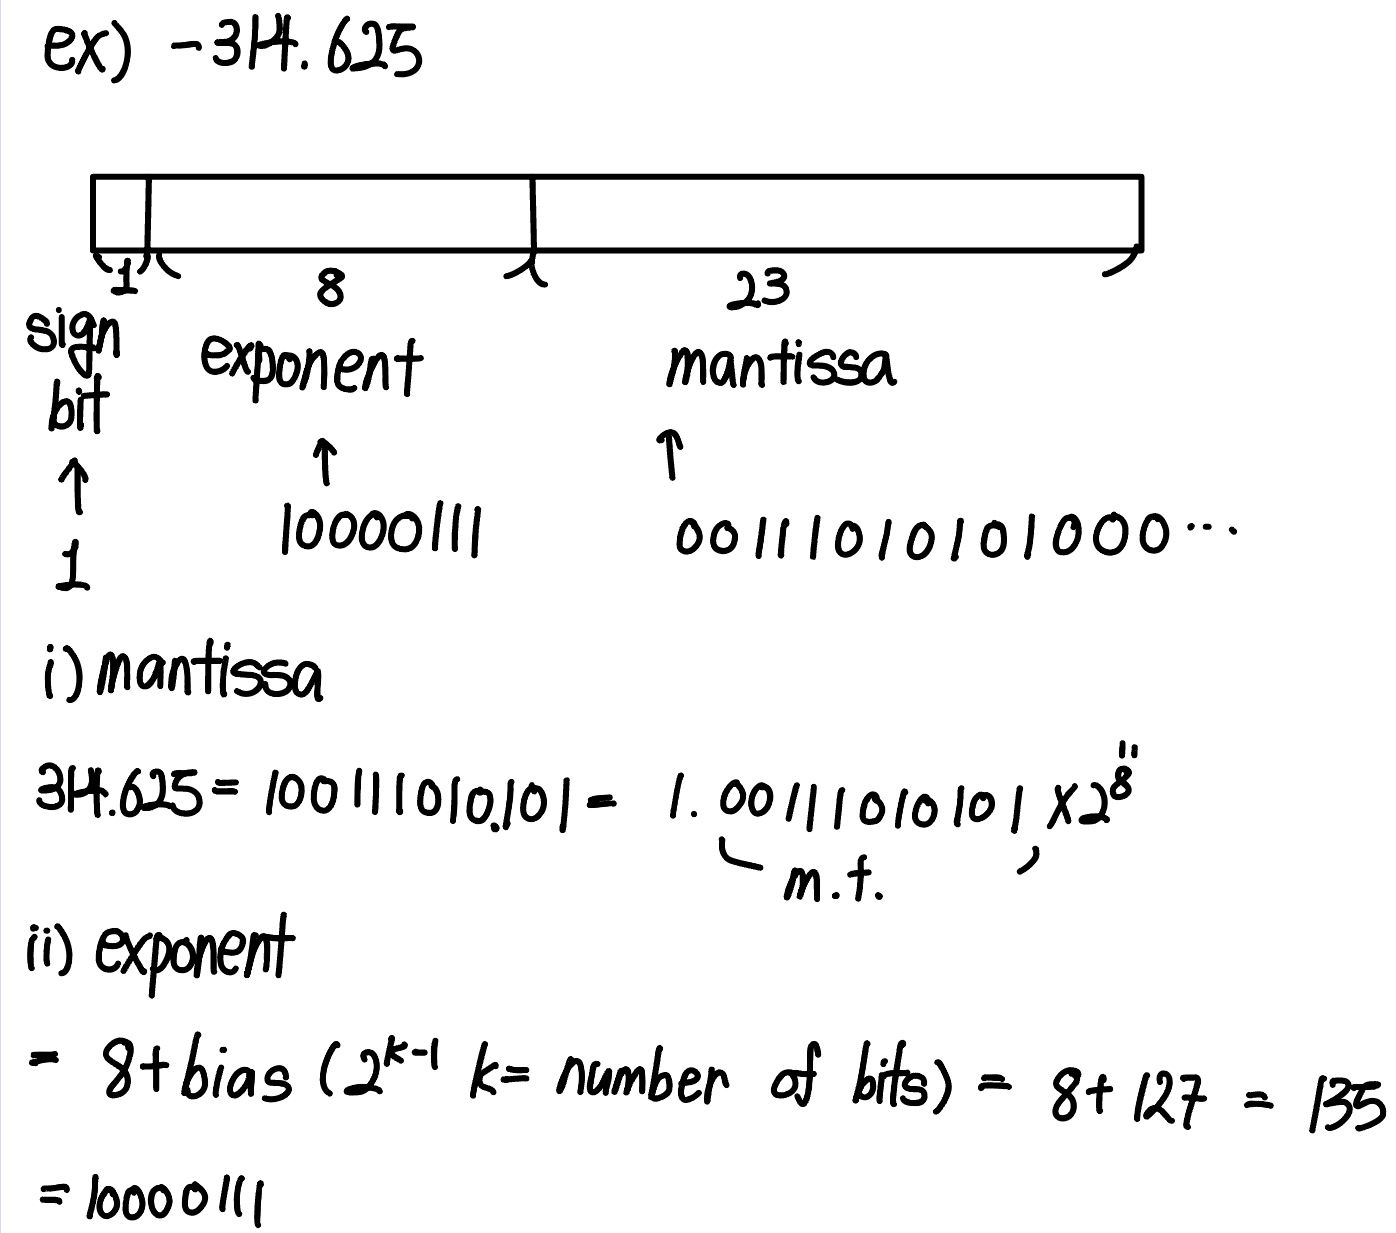 ex) -314.625
1 8 23
sign bit exponent mantissa
↑ ↑ ↑
1 10000111 00111010101000...
i) mantissa
314.625 = 100111010.101 = 1.00111010101 x 2^8
m.t.
ii) exponent
= 8 + bias (2^k-1 k = number of bits) = 8 + 127 = 135
= 10000111